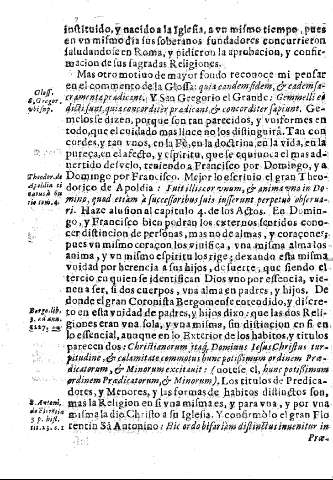 instituido, y nacido a la Iglesia, a vn mismo tiempo, pues
en vn mismo dia sus soberanos fundadores concurrieron
saludandose en Roma, y pidieron la aprobacion, y confir-
macion de sus sagradas Religiones.
Mas otro motivo de mayor fondo reconoce mi pensar
en el commento de la Glossa: quia eandem fidem, & eadem sa-
cramenta prædicant. Y San Gregorio el Grande: Gemmelli
dicti sunt, quia concorditer prædicant, & concorditer sapiunt. Ge-
melos le dizen, porque son tan parecidos, y vniformes en
todo, que el cuidado mas lince no los distinguirà. Tan con
cordes, y tan vnos, en la Fè, en la doctrina, en la vida, en la
pureça, en el afecto, y espiritu, que se equivoca el mas ad-
vertido desvelo, teniendo a Francisco por Domingo, y a
Domingo por Francisco. Mejor lo escrivio el gran Theo-
dorico de Apoldia: Fuit illis cor vnum, & anima vna in Do-
mino, quod etiam à successoribus suis inserunt perpetuò obserua-
ri. Haze alusion al capitulo 4. de los Actos. En Domin-
go, y Francisco bien podràn los externos sentidos cono-
cer distincion de personas, mas no de almas, y coraçones;
pues vn mismo coraçon los vivifica, vna misma alma los
anima, y vn mismo espiritu los rige; dexando esta misma
vnidad por herencia a sus hijos, de suerte, que siendo el
tercio en quien se identifican Dios vno por essencia, vie-
nen a ser, si dos cuerpos, vna alma en padres, y hijos. De
donde el gran Coronista Bergomense entendido, y discre-
to en esta vnidad de padres, y hijos dixo: que las dos Reli-
giones eran vna sola, y vna misma, sin distincion en si en
lo essencial, aunque en lo Exterior de los habitos, y titulos
parecen dos: Christianorum itaq; Dominus Jesus Christus tur-
pitudine, & calamitate commotus hunc potissimum ordinem Præ-
dicatorum, & Minorum excitauit: (notese el, hunc potissimum
ordinem Prædicatorum, & Minorum). Los titulos de Predica-
dores, y Menores, y las formas de habitos distinctos son,
mas la Religion en si vna misma es, y para vna, y por vna
misma la diò Christo a su Iglesia. Y confirmòlo el gran Flo
rentin Sã Antonino: Hic ordo bifariàm distinctus inuenitur in
Præ-
Gloss.
S. Gregor.
vbi sup.
Theodor. de
Apoldia